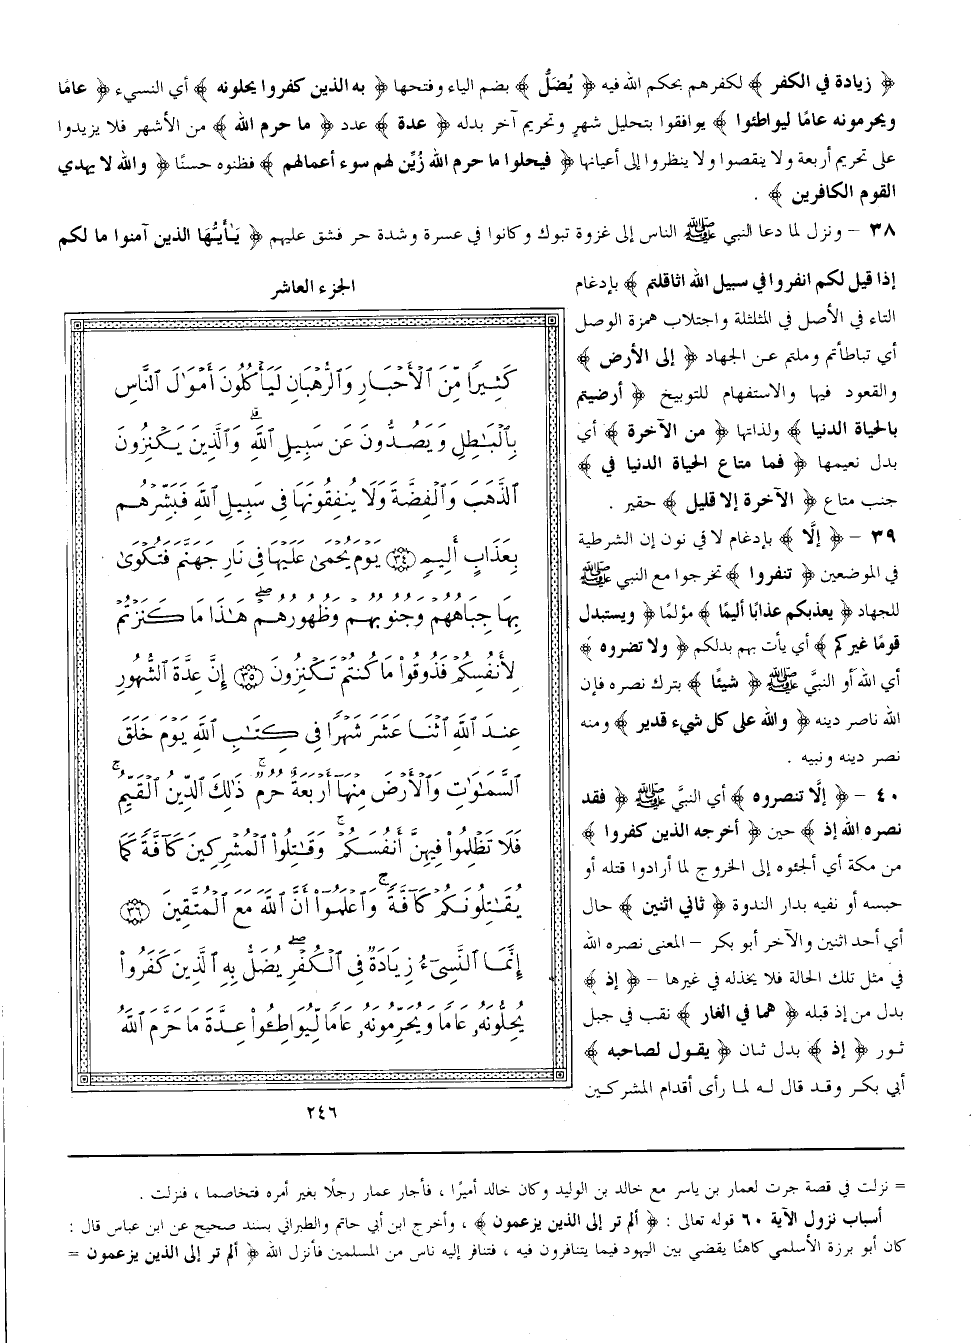 ﴿ زيادة في الكفر ﴾ لكفرهم بحكم الله فيه ﴿ يُضَلُّ ﴾ بضم الياء وفتحها ﴿ به الذين كفروا يحلونه ﴾ أي النسيء ﴿ عامًا
ويحرمونه عامًا ليواطئوا ﴾ يوافقوا بتحليل شهرٍ وتحريم آخر بدله ﴿ عدة ﴾ عدد ﴿ ما حرم الله ﴾ من الأشهر فلا يزيدوا
على تحريم أربعة ولا ينقصوا ولا ينظروا إلى أعيانها ﴿ فيحلوا ما حرم الله زُيِّن لهم سوء أعمالهم ﴾ فظنوه حسنًا ﴿ والله لا يهدي
القوم الكافرين ﴾ .
٣٨ – ونزل لما دعا النبي ﷺ الناس إلى غزوة تبوك وكانوا في عسرة وشدة حر فشق عليهم ﴿ يَـٰأَيُّهَا الذين آمنوا ما لكم
إذا قيل لكم انفروا في سبيل الله اثاقلتم ﴾ بإدغام
التاء في الأصل في المثلثة واجتلاب همزة الوصل
أي تباطأتم وملتم عن الجهاد ﴿ إلى الأرض ﴾
والقعود فيها والاستفهام للتوبيخ ﴿ أرضيتم
بالحياة الدنيا ﴾ ولذاتها ﴿ من الآخرة ﴾ أي
بدل نعيمها ﴿ فما متاع الحياة الدنيا في ﴾
جنب متاع ﴿ الآخرة إلا قليل ﴾ حقير .
٣٩ – ﴿ إلَّا ﴾ بإدغام لا في نون إن الشرطية
في الموضعين ﴿ تنفروا ﴾ تخرجوا مع النبي ﷺ
للجهاد ﴿ يعذبكم عذابًا أليمًا ﴾ مؤلمًا ﴿ ويستبدل
قومًا غيركم ﴾ أي يأت بهم بدلكم ﴿ ولا تضروه ﴾
أي الله أو النبيَّ ﷺ ﴿ شيئًا ﴾ بترك نصره فإن
الله ناصر دينه ﴿ والله على كل شيء قدير ﴾ ومنه
نصر دينه ونبيه .
٤٠ – ﴿ إلَّا تنصروه ﴾ أي النبيَّ ﷺ ﴿ فقد
نصره الله إذ ﴾ حين ﴿ أخرجه الذين كفروا ﴾
من مكة أي ألجئوه إلى الخروج لما أرادوا قتله أو
حبسه أو نفيه بدار الندوة ﴿ ثاني اثنين ﴾ حال
أي أحد اثنين والآخر أبو بكر – المعنى نصره الله
في مثل تلك الحالة فلا يخذله في غيرها – ﴿ إذ ﴾
بدل من إذ قبله ﴿ هما في الغار ﴾ نقب في جبل
ثور ﴿ إذ ﴾ بدل ثان ﴿ يقول لصاحبه ﴾
أبي بكر وقد قال له لما رأى أقدام المشركين
الجزء العاشر
كَثِيرًا مِّنَ ٱلْأَحْبَارِ وَٱلرُّهْبَانِ لَيَأْكُلُونَ أَمْوَٰلَ ٱلنَّاسِ
بِٱلْبَـٰطِلِ وَيَصُدُّونَ عَن سَبِيلِ ٱللَّهِ ۗ وَٱلَّذِينَ يَكْنِزُونَ
ٱلذَّهَبَ وَٱلْفِضَّةَ وَلَا يُنفِقُونَهَا فِى سَبِيلِ ٱللَّهِ فَبَشِّرْهُم
بِعَذَابٍ أَلِيمٍ ﴿٣٤﴾ يَوْمَ يُحْمَىٰ عَلَيْهَا فِى نَارِ جَهَنَّمَ فَتُكْوَىٰ
بِهَا جِبَاهُهُمْ وَجُنُوبُهُمْ وَظُهُورُهُمْ ۖ هَـٰذَا مَا كَنَزْتُمْ
لِأَنفُسِكُمْ فَذُوقُوا۟ مَا كُنتُمْ تَكْنِزُونَ ﴿٣٥﴾ إِنَّ عِدَّةَ ٱلشُّهُورِ
عِندَ ٱللَّهِ ٱثْنَا عَشَرَ شَهْرًا فِى كِتَـٰبِ ٱللَّهِ يَوْمَ خَلَقَ
ٱلسَّمَـٰوَٰتِ وَٱلْأَرْضَ مِنْهَآ أَرْبَعَةٌ حُرُمٌ ۚ ذَٰلِكَ ٱلدِّينُ ٱلْقَيِّمُ ۚ
فَلَا تَظْلِمُوا۟ فِيهِنَّ أَنفُسَكُمْ ۚ وَقَـٰتِلُوا۟ ٱلْمُشْرِكِينَ كَآفَّةً كَمَا
يُقَـٰتِلُونَكُمْ كَآفَّةً ۚ وَٱعْلَمُوٓا۟ أَنَّ ٱللَّهَ مَعَ ٱلْمُتَّقِينَ ﴿٣٦﴾
إِنَّمَا ٱلنَّسِىٓءُ زِيَادَةٌ فِى ٱلْكُفْرِ ۖ يُضَلُّ بِهِ ٱلَّذِينَ كَفَرُوا۟
يُحِلُّونَهُۥ عَامًا وَيُحَرِّمُونَهُۥ عَامًا لِّيُوَاطِـُٔوا۟ عِدَّةَ مَا حَرَّمَ ٱللَّهُ
٢٤٦
= نزلت في قصة جرت لعمار بن ياسر مع خالد بن الوليد وكان خالد أميرًا ، فأجار عمار رجلًا بغير أمره فتخاصما ، فنزلت .
أسباب نزول الآية ٦٠ قوله تعالى : ﴿ ألم تر إلى الذين يزعمون ﴾ ، وأخرج ابن أبي حاتم والطبراني بسند صحيح عن ابن عباس قال :
كان أبو برزة الأسلمي كاهنًا يقضي بين اليهود فيما يتنافرون فيه ، فتنافر إليه ناس من المسلمين فأنزل الله ﴿ ألم تر إلى الذين يزعمون =